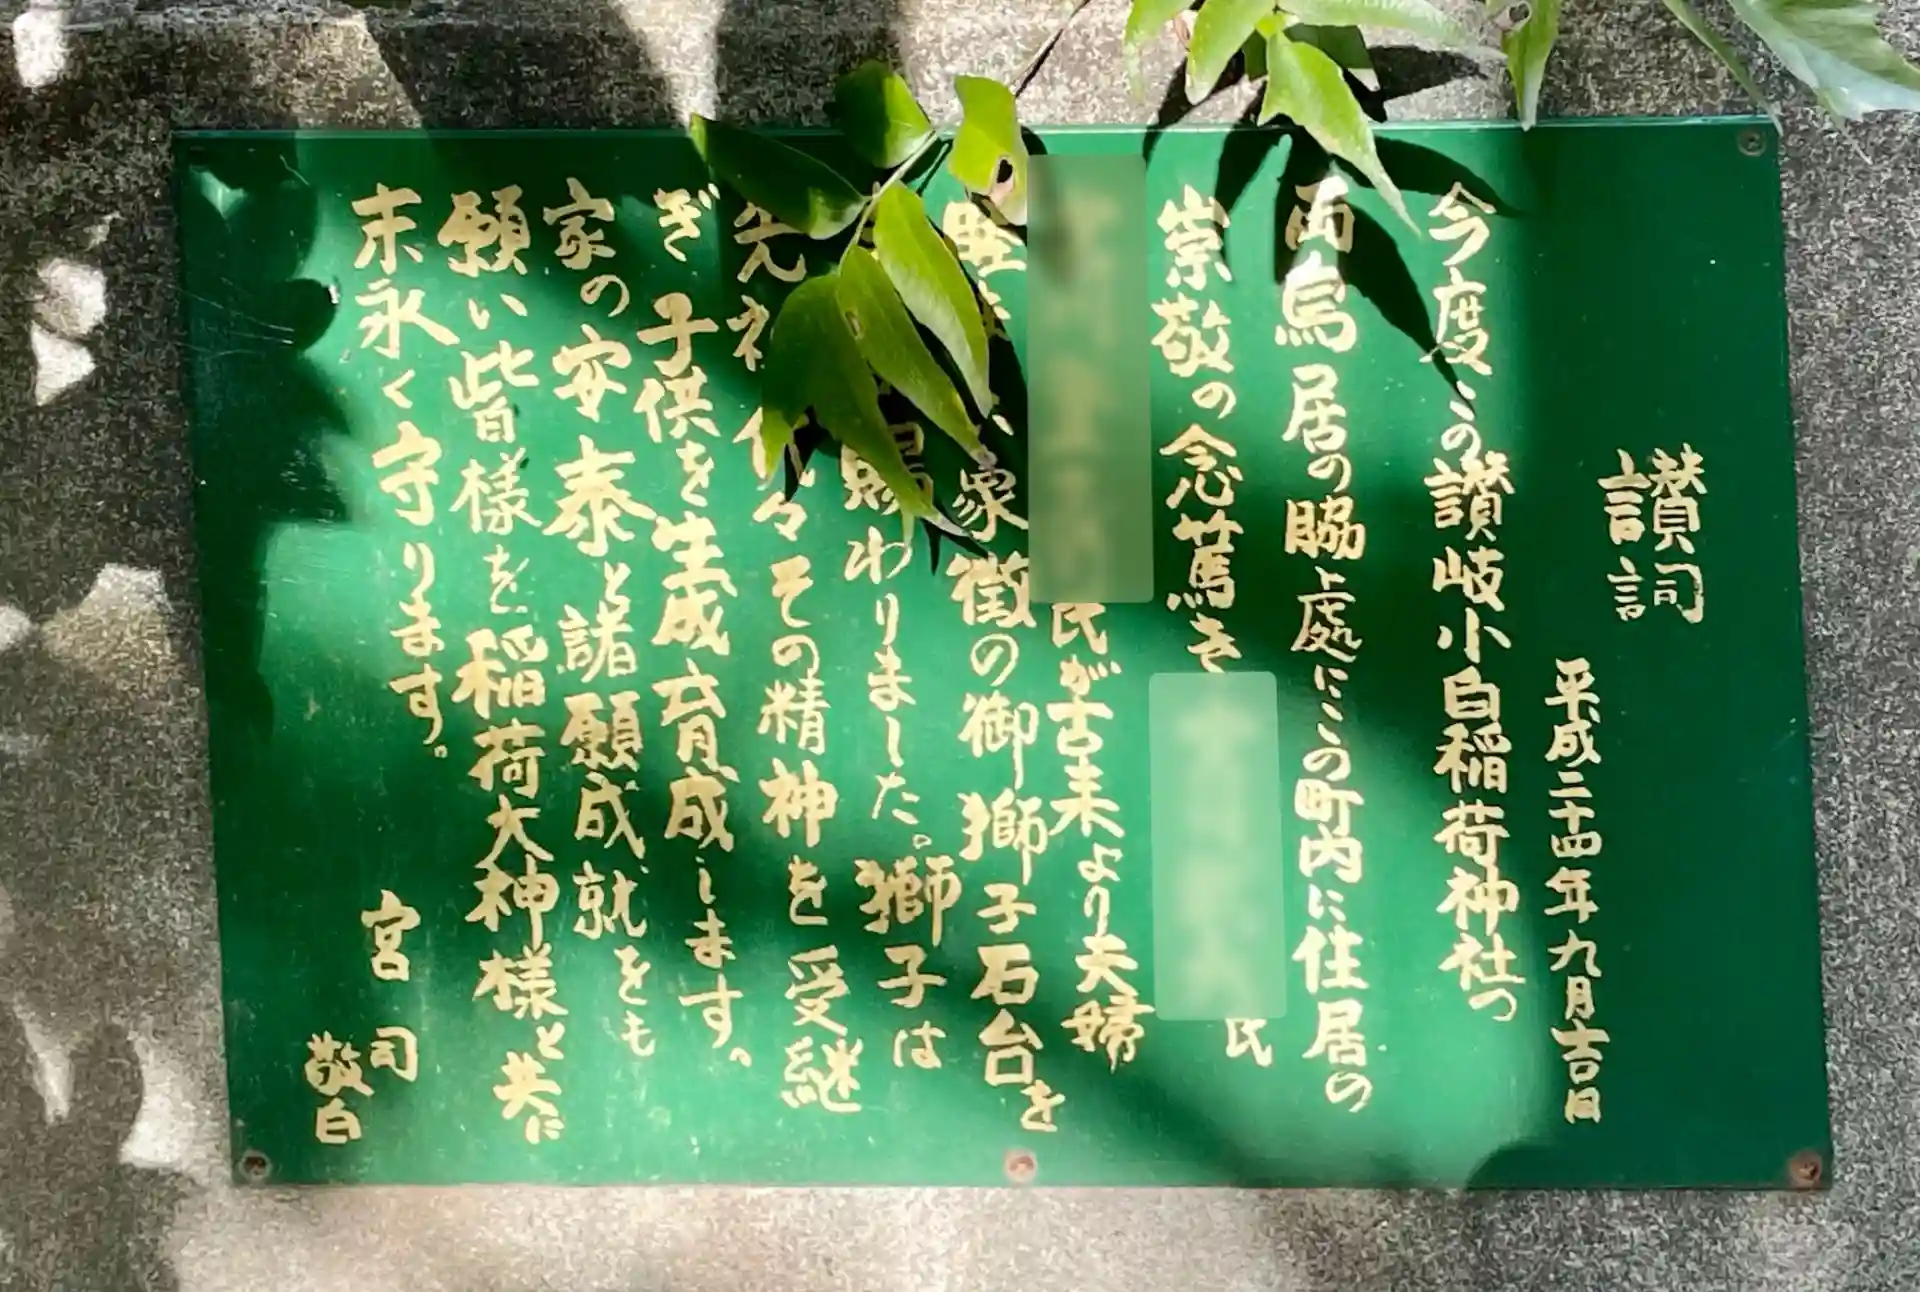 讃詞
平成二十四年九月吉日
今度この讃岐小白稲荷神社の
両鳥居の脇上處にこの町内に住居の
崇敬の念篤き
氏
氏が古来より夫婦
睦 象徴の御獅子石台を
賜わりました。獅子は
先 代々その精神を受継
ぎ子供を生成育成します。
家の安泰と諸願成就をも
願い皆様を稲荷大神様と共に
末永く守ります。
宮司
敬白